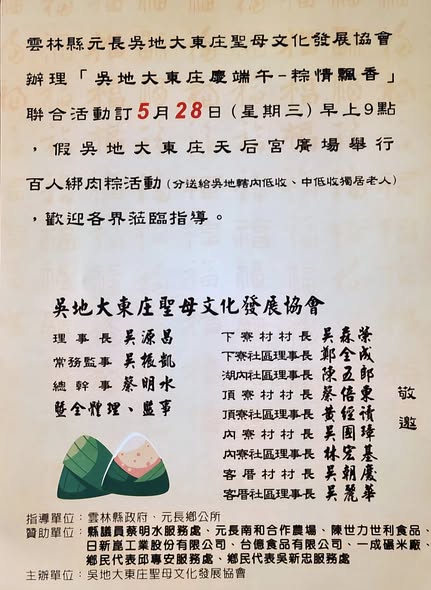 雲林縣元長吳地大東庄聖母文化發展協會
辦理「吳地大東庄慶端午-粽情飄香」
聯合活動訂5月28日(星期三)早上9點
，假吳地大東庄天后宮廣場舉行
百人綁肉粽活動(分送給吳地轄內低收、中低收獨居老人)
，歡迎各界蒞臨指導。
吳地大東庄聖母文化發展協會
理事長 吳源昌
常務監事 吳振凱
總幹事 蔡明水
暨全體理、監事
下寮村村長 吳森榮
下寮社區理事長 鄭全成
湖內社區理事長 陳五郎
頂寮村村長 蔡倍東
頂寮社區理事長 黃經讀
內寮村村長 吳國璋
內寮社區理事長 林宏基
客厝村村長 吳朝慶
客厝社區理事長 吳麗華
敬邀
指導單位：雲林縣政府、元長鄉公所
贊助單位：縣議員蔡明水服務處、元長南和合作農場、陳世力世利食品、
日新崑工業股份有限公司、台億食品有限公司、一成碾米廠、
鄉民代表邱專安服務處、鄉民代表吳新忠服務處
主辦單位：吳地大東庄聖母文化發展協會